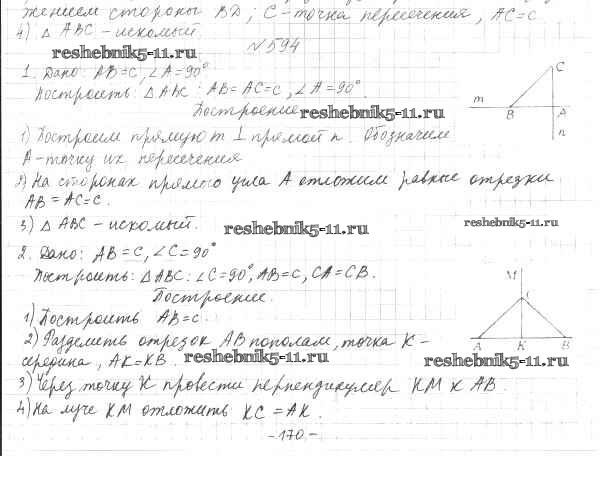 жением стороны BD; C-точка пересечения, AC=C.
4) △ ABC - искомый.
reshebnik5-11.ru
№594
1. Дано: AB=C, ∠A=90°
Построить: △ABC: AB=AC=C, ∠A=90°.
Построение
reshebnik5-11.ru
1) Построим прямую m ⊥ прямой n. Обозначим
A-точку их пересечения
2) На сторонах прямого угла A отложим равные отрезки
AB=AC=C.
3) △ ABC - искомый.
reshebnik5-11.ru
C
m
B
A
n
reshebnik5-11.ru
2. Дано: AB=C, ∠C=90°
Построить: △ABC: ∠C=90°, AB=C, CA=CB.
Построение.
1) Построить AB=C.
2) Разделить отрезок AB пополам, точка K-
середина, AK=KB.
reshebnik5-11.ru
3) Через точку K провести перпендикуляр KM к AB.
4) На луче KM отложить KC=AK.
M
C
A
K
B
reshebnik5-11.ru
-170-